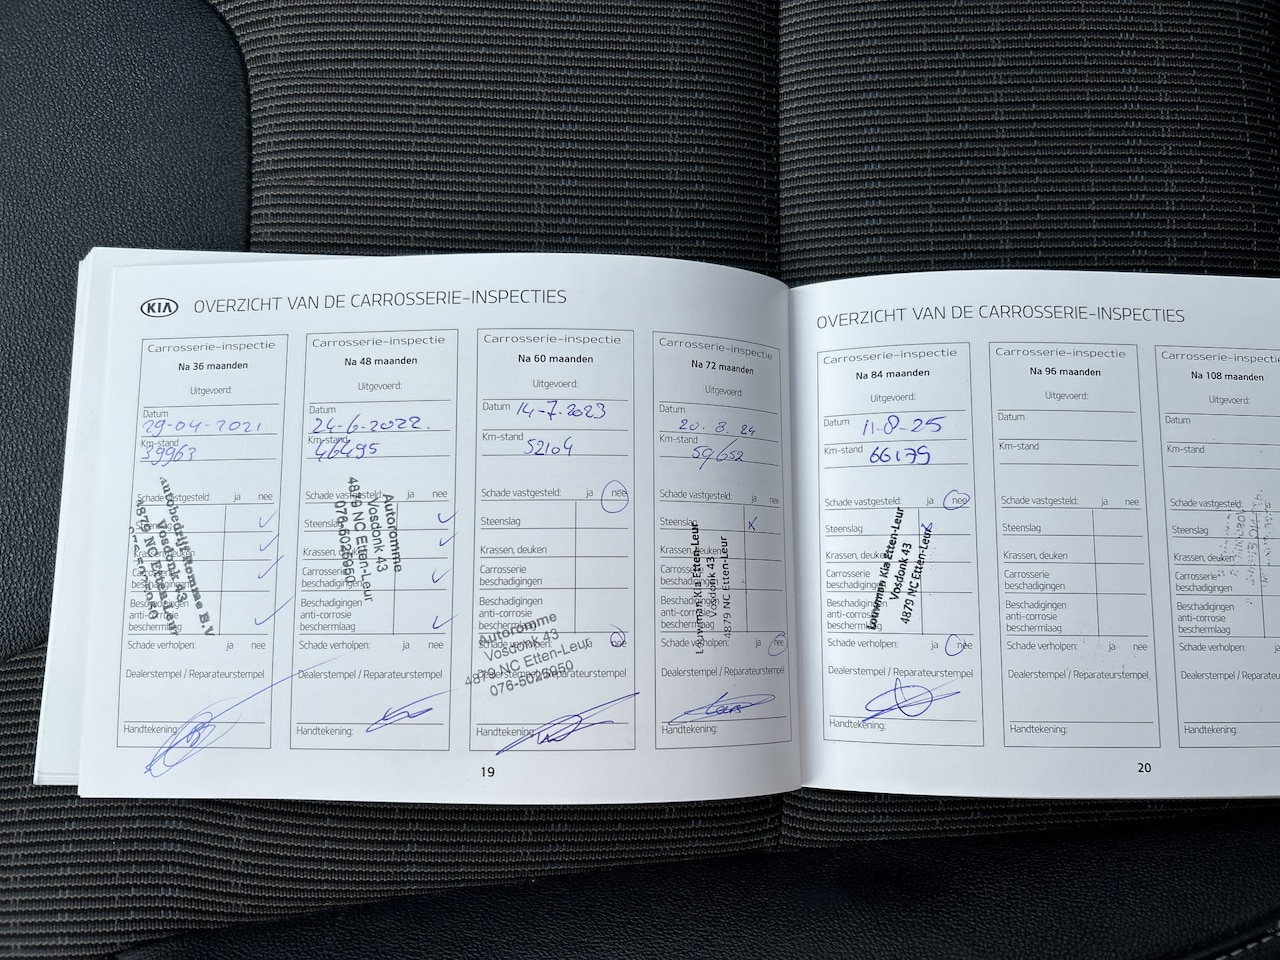 KIA OVERZICHT VAN DE CARROSSERIE-INSPECTIES
Carrosserie-inspectie
Na 36 maanden
Uitgevoerd:
Datum
29-04-2021
Km-stand
39963
Schade vastgesteld: ja nee
Steenslag
Krassen, deuken
Carrosserie
beschadigingen
Beschadigingen
Autobedrijf Romme B.V.
Vosdonk 43
4879 NC Etten-Leur
Schade verholpen: ja nee
Dealerstempel / Reparateurstempel
Handtekening:
Carrosserie-inspectie
Na 48 maanden
Uitgevoerd:
Datum
24-6-2022.
Km-stand
46495
Schade vastgesteld: ja nee
Steenslag
Krassen, deuken
Carrosserie
beschadigingen
Beschadigingen
anti-corrosie
beschermlaag
Autoromme
Vosdonk 43
4879 NC Etten-Leur
076-5025950
Schade verholpen: ja nee
Dealerstempel / Reparateurstempel
Handtekening:
Carrosserie-inspectie
Na 60 maanden
Uitgevoerd:
Datum 14-7-2023
Km-stand
52104
Schade vastgesteld: ja nee
Steenslag
Krassen, deuken
Carrosserie
beschadigingen
Beschadigingen
anti-corrosie
beschermlaag
Schade verholpen: ja nee
Autoromme
Vosdonk 43
4879 NC Etten-Leur
076-5025950
Dealerstempel / Reparateurstempel
Handtekening:
Carrosserie-inspectie
Na 72 maanden
Uitgevoerd:
Datum
20.8.24
Km-stand
59652
Schade vastgesteld: ja nee
Steenslag x
Krassen, deuken
Carrosserie
beschadigingen
Beschadigingen
anti-corrosie
beschermlaag
Louwman Kia Etten-Leur
Vosdonk 43
4879 NC Etten-Leur
Schade verholpen: ja nee
Dealerstempel / Reparateurstempel
Handtekening:
19
OVERZICHT VAN DE CARROSSERIE-INSPECTIES
Carrosserie-inspectie
Na 84 maanden
Uitgevoerd:
Datum 11-8-25
Km-stand 66179
Schade vastgesteld: ja nee
Steenslag x
Krassen, deuken
Carrosserie
beschadigingen
Beschadigingen
anti-corrosie
beschermlaag
Louwman Kia Etten-Leur
Vosdonk 43
4879 NC Etten-Leur
Schade verholpen: ja nee
Dealerstempel / Reparateurstempel
Handtekening:
Carrosserie-inspectie
Na 96 maanden
Uitgevoerd:
Datum
Km-stand
Schade vastgesteld: ja nee
Steenslag
Krassen, deuken
Carrosserie
beschadigingen
Beschadigingen
anti-corrosie
beschermlaag
Schade verholpen: ja nee
Dealerstempel / Reparateurstempel
Handtekening:
Carrosserie-inspectie
Na 108 maanden
Uitgevoerd:
Datum
Km-stand
Schade vastgesteld: ja
Steenslag
Krassen, deuken
Carrosserie
beschadigingen
Beschadigingen
anti-corrosie
beschermlaag
Schade verholpen:
Dealerstempel /
Handtekening:
20